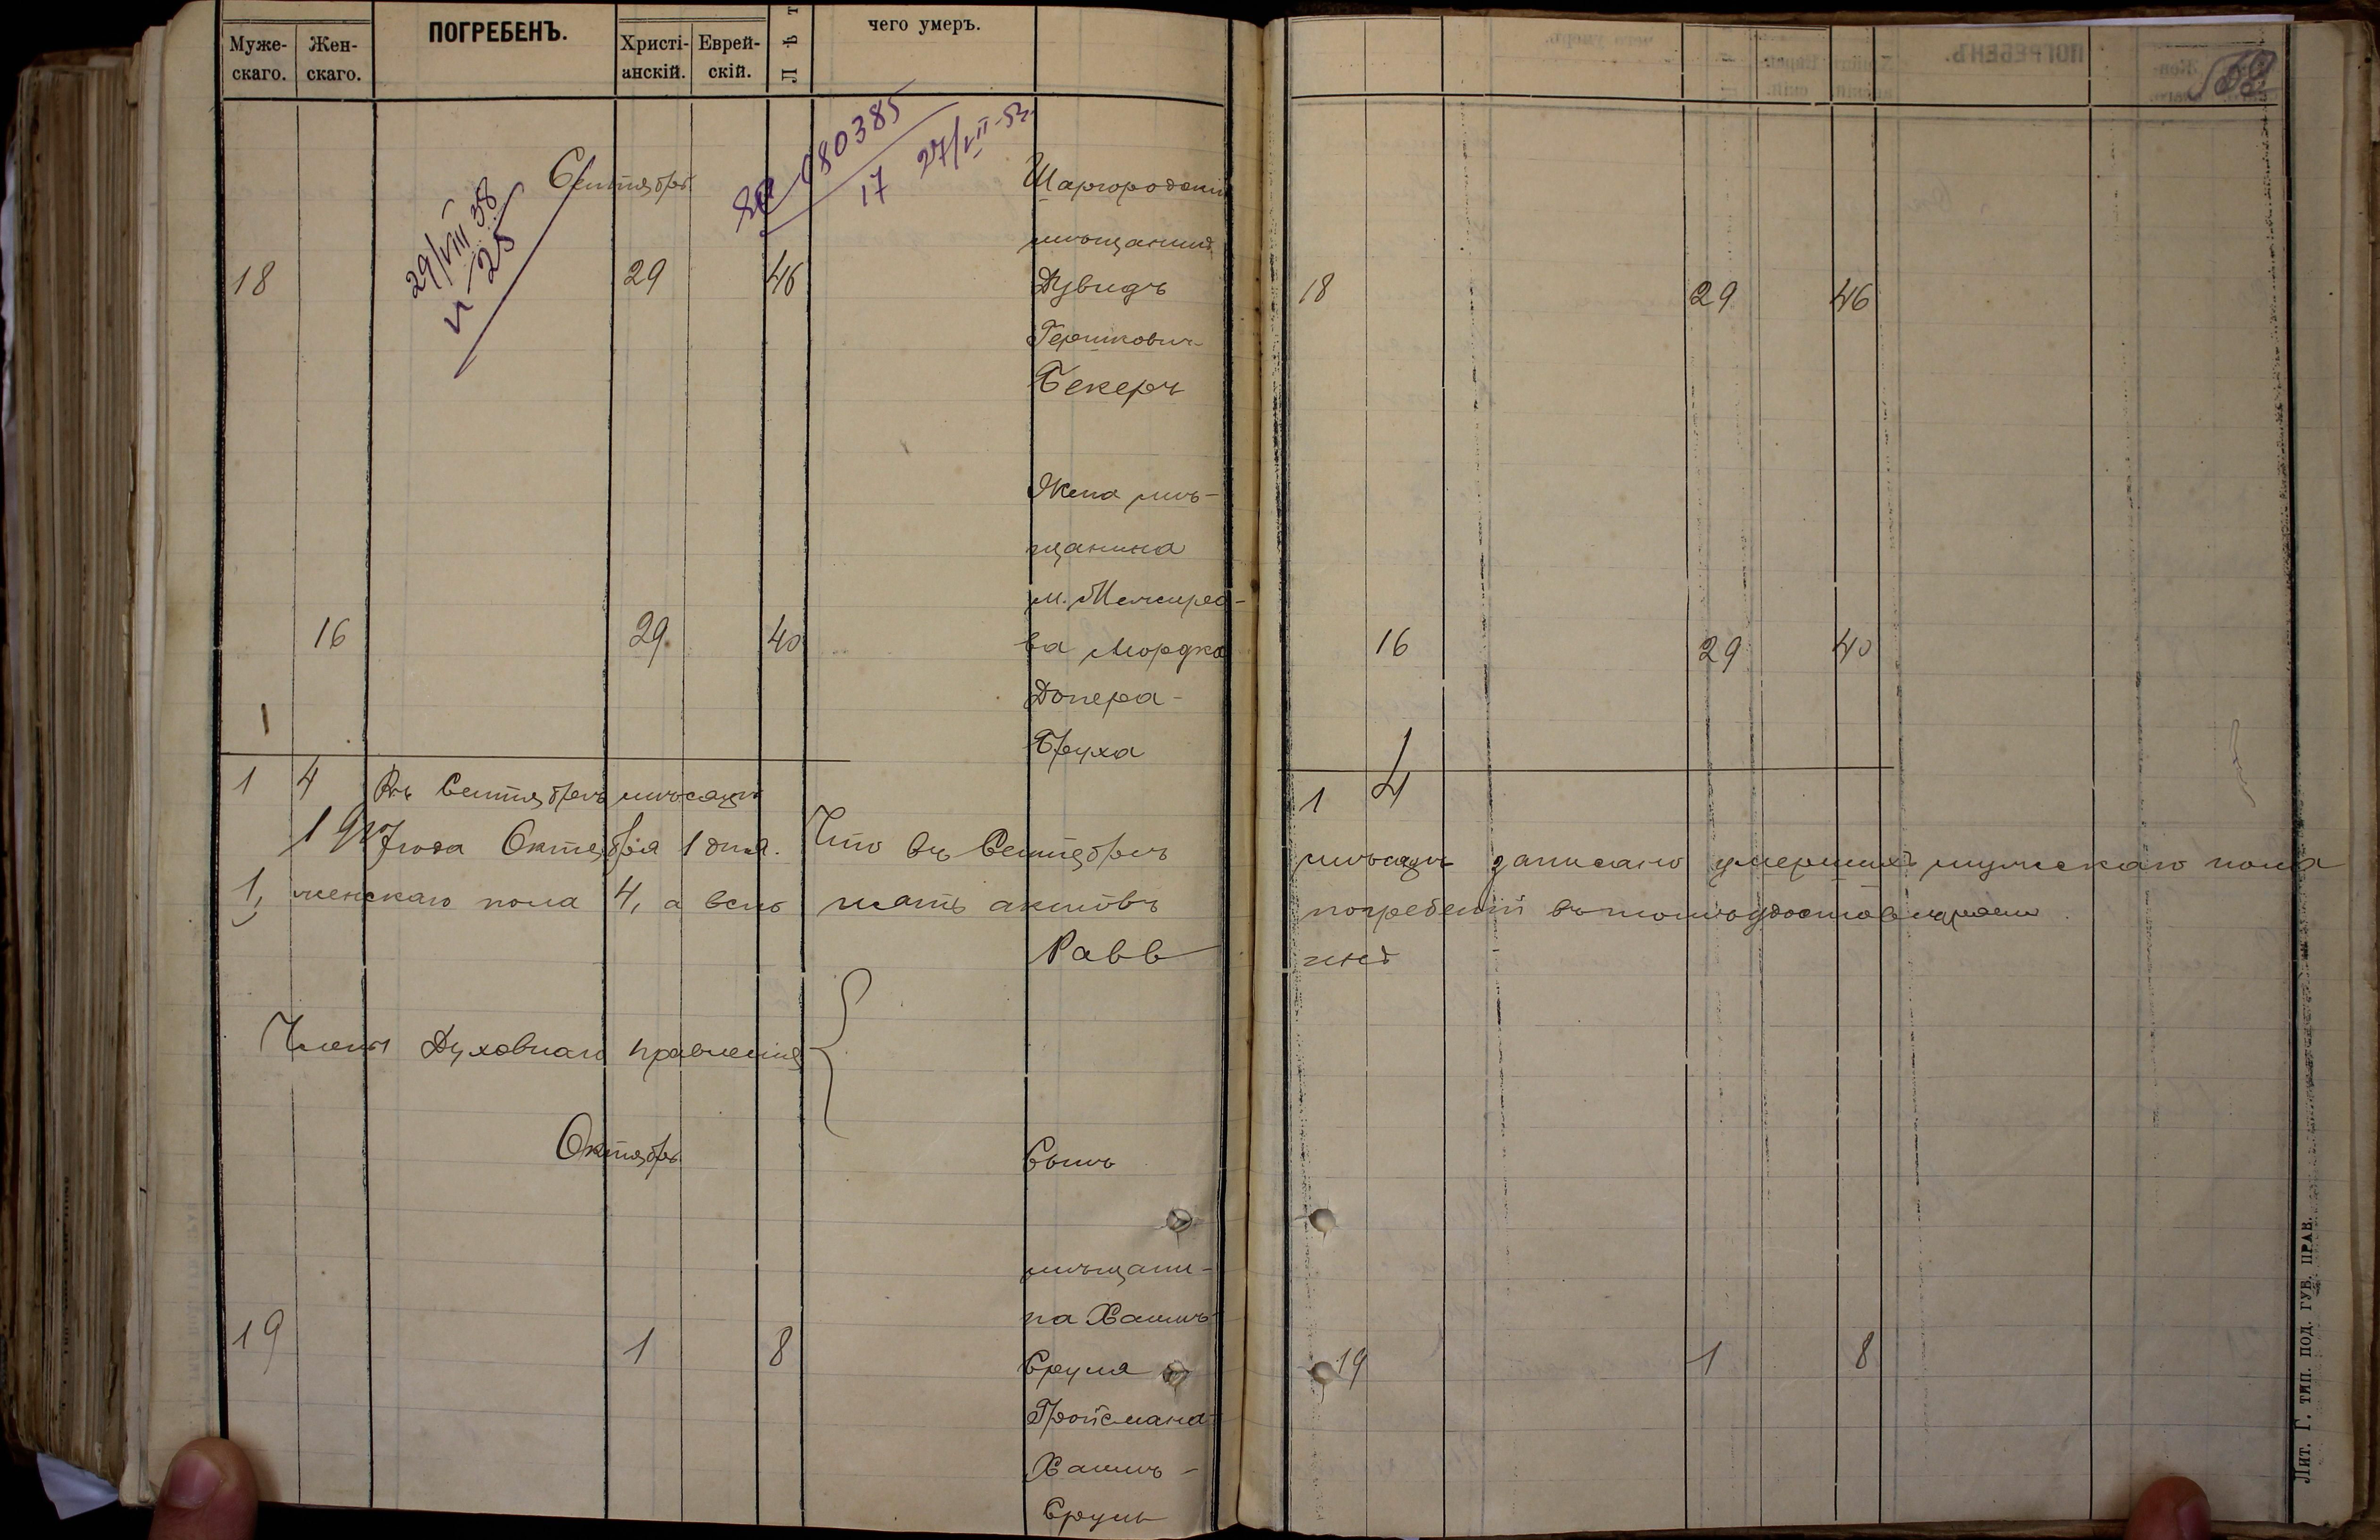 Муже-
скаго.
Жен-
скаго.
ПОГРЕБЕНЪ.
Христі-
анскій.
Еврей-
скій.
Лѣт
чего умеръ.
Сентябрь
29/VIII 38
N 25
080385
17 27/VII-52
Шаргородскій
мѣщанинъ
18 29 46 Дувидъ
Гершковичъ
Бекеръ
Жена мѣ-
щанина
м. Межиро-
16 29 40 ва Мордка
Допера-
Бруха
1 4 Въ Сентябрѣ мѣсяцѣ
года Октября 1 дня. Что въ Сентябрѣ
1, женскаго пола 4, а всего пять актовъ
Равв
Члены Духовнаго правленія
Октябрь
Сынъ
мѣщани-
на Хаимъ-
19 1 8 Сруля
Гройсмана-
Хаимъ-
Сруль
18 29 46
16 29 40
1 4
мѣсяцѣ записано умершихъ мужскаго пола
погребеній въ томъ удостовѣряемъ
инъ
19 1 8
Лит. Г. тип. под. губ. прав.